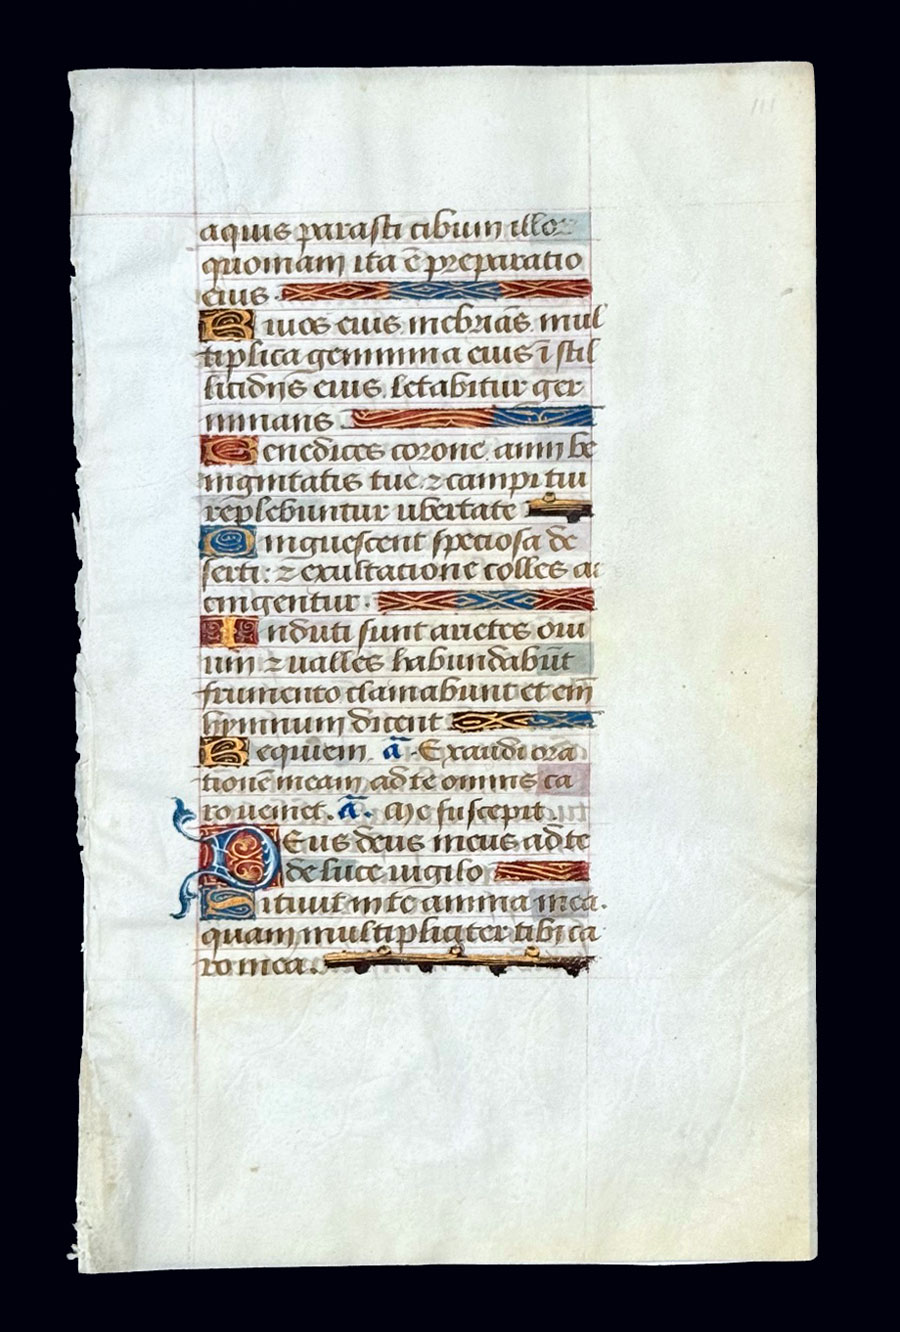 111
aquis parasti cibum illoꝝ
quoniam ita ē preparatio
eius
Riuos eius inebrians mul
tiplica genimina eius ī stil
licidijs eius letabitur ger
minans
Benedices corone anni be
nignitatis tue ⁊ campi tui
replebuntur ubertate
Pinguescent speciosa de
serti: ⁊ exultatione colles ac
cingentur.
Induti sunt arietes oui
um ⁊ ualles habundabūt
frumento clamabunt et em̄
hymnum dicent
Requiem. ā. Exaudi ora
tionē meam ad te omnis ca
ro ueniet. ā. Me suscepit.
DEus deus meus ad te
de luce uigilo
Sitiuit in te anima mea.
quam multipliciter tibi ca
ro mea.